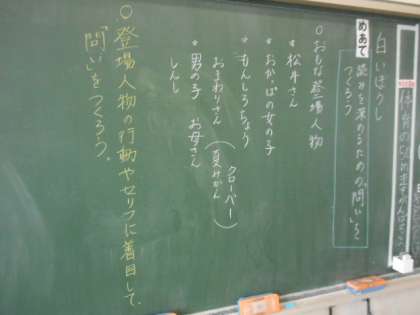 白いぼうし
めあて
読みを深めるための「問い」を
つくろう
○おもな登場人物
*松井さん
*おかっぱの女の子
*もんしろちょう
おまわりさん
(夏みかん
クローバー)
*男の子 お母さん
しんし
○登場人物の行動やセリフに着目して、
「問い」をつくろう。